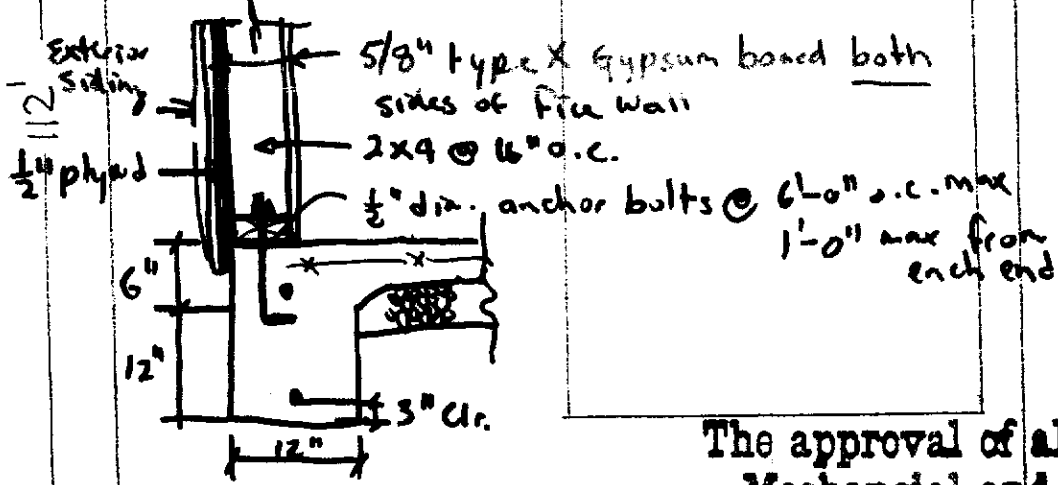 Exterior
Siding
5/8" type X Gypsum board both
sides of Fire Wall
112'
2x4 @ 16" o.c.
1/2" plywd
1/2" dia. anchor bolts @ 6'-0" o.c. max
1'-0" max from
each end
6"
12"
3" Clr.
12"
The approval of al
Mechanical and